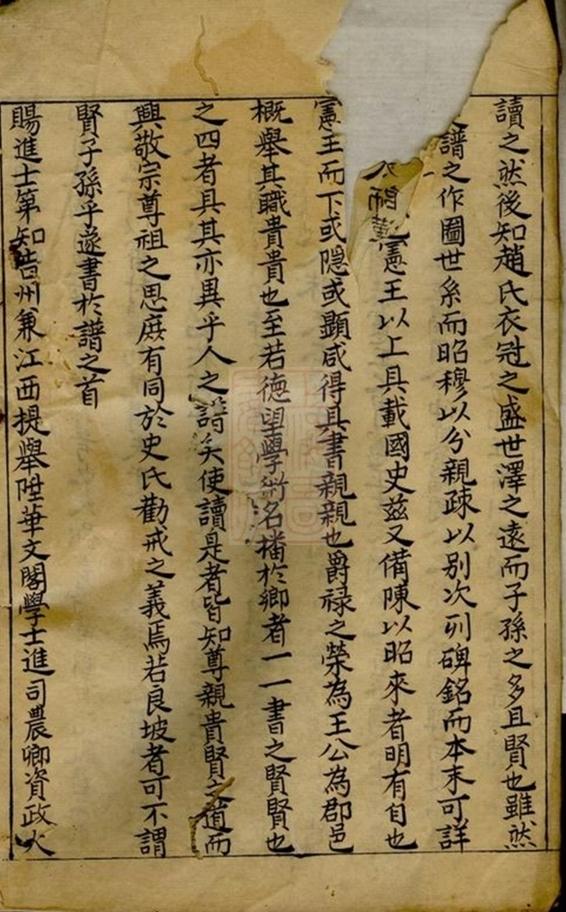 讀之然後知趙氏衣冠之盛世澤之遠而子孫之多且賢也雖然
譜之作圖世系而昭穆以分親疎以别次列碑銘而本末可詳
憲王以上具載國史兹又備陳以昭來者明有自也
憲王而下或隠或顯咸得具書親親也爵禄之榮為王公為郡邑
概舉其職貴貴也至若徳望學術名播於鄉者一一書之賢賢也
之四者具其亦異乎人之譜矣使讀是者皆知尊親貴賢之道而
興敬宗尊祖之思庶有同於史氏勸戒之義焉若良坡者可不謂
賢子孫乎遂書於譜之首
賜進士第知吉州兼江西提舉陞華文閣學士進司農卿資政大